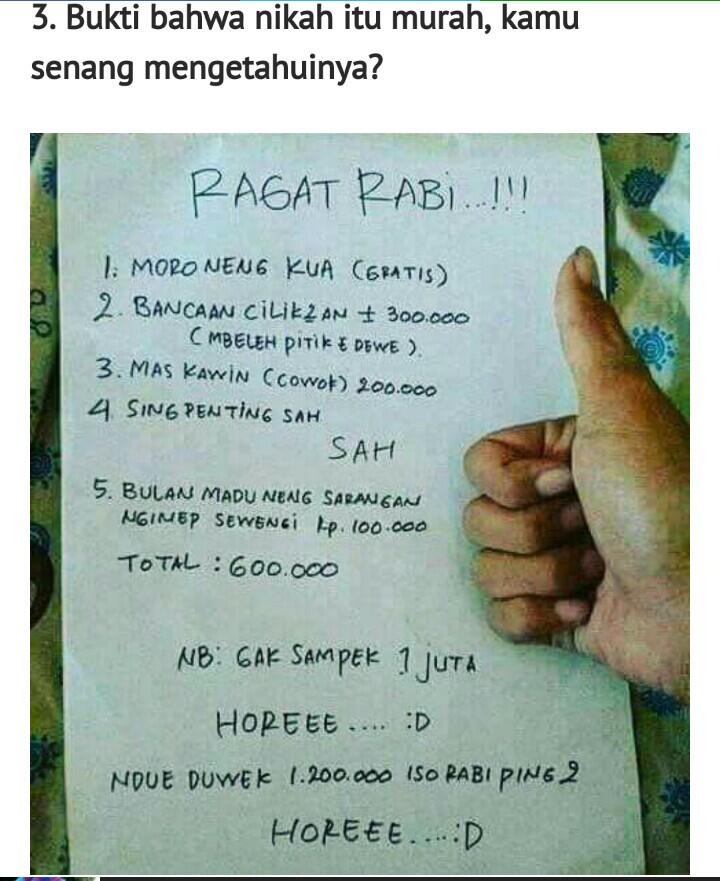 3. Bukti bahwa nikah itu murah, kamu
senang mengetahuinya?
RAGAT RABi...!!!
1. MORO NENG KUA (GRATIS)
2. BANCAAN CiLik2AN ± 300.000
( MBELEH PiTik E DEWE ).
3. MAS KAWiN (COWOK) 200.000
4. SING PENTiNG SAH
SAH
5. BULAN MADU NENG SARANGAN
NGINEP SEWENGi Rp. 100.000
TOTAL : 600.000
NB: GAK SAMPEK 1 JUTA
HOREEE .... :D
NDUE DUWEK 1.200.000 ISO RABI PING 2
HOREEE....:D